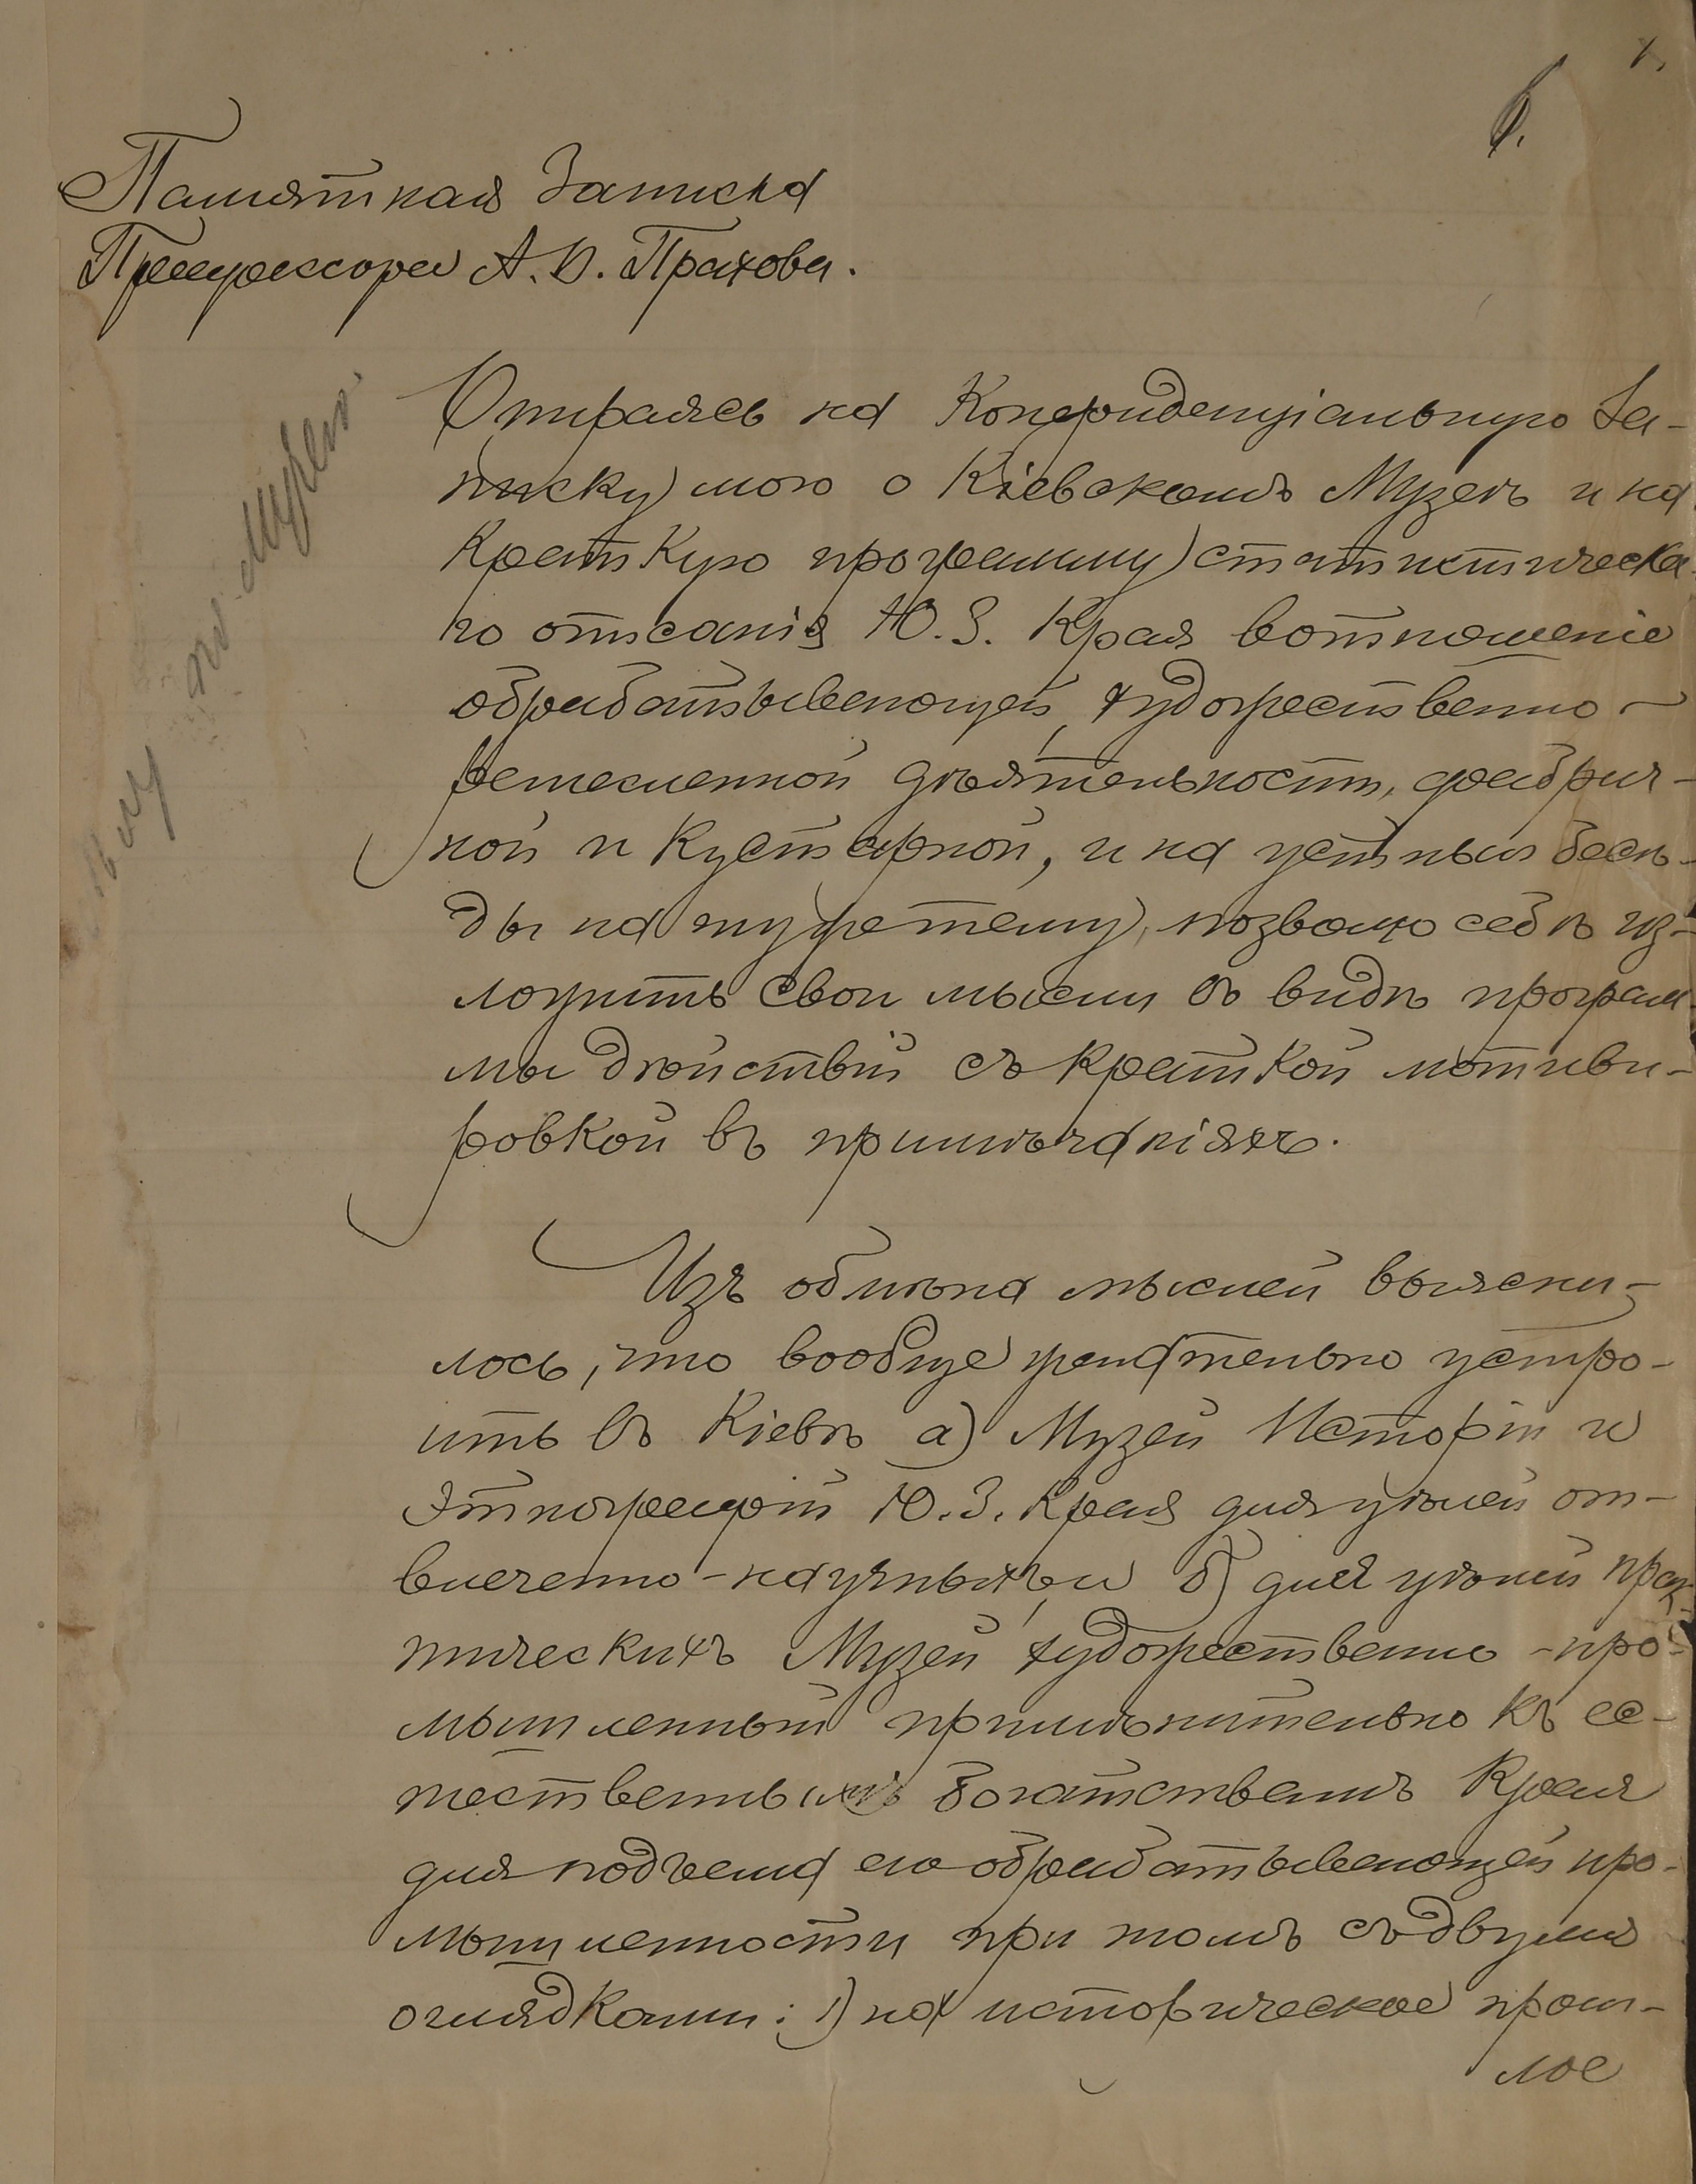 1.
Памятная Записка
Профессора А. В. Прахова.
Опираясь на Конфиденціальную За-
писку мою о Кіевскомъ Музеѣ и на
Краткую программу статистическа-
го описанія Ю. З. Края вотношеніе
обрабатывающей, художественно-
ремесленной дѣятельности, фабрич-
ной и Кустарной, и на устныя бесѣ-
ды на ту же тему, позволю себѣ из-
ложить свои мысли въ видѣ програм-
мы дѣйствій съ Краткой мотиви-
ровкой въ примѣчаніяхъ.
Изъ обмѣна мыслей выясни-
лось, что вообще желательно устро-
ить въ Кіевѣ а) Музей Исторіи и
Этнографіи Ю. З. Края для цѣлей от-
влеченно-научныхъ, и б) для цѣлей прак-
тическихъ Музей художественно-про-
мышленный примѣнительно къ ес-
тественнымъ богатствамъ Края
для подъема его обрабатывающей про-
мышленности при томъ съ двумя
оглядками: 1) на историческое прош-
лое